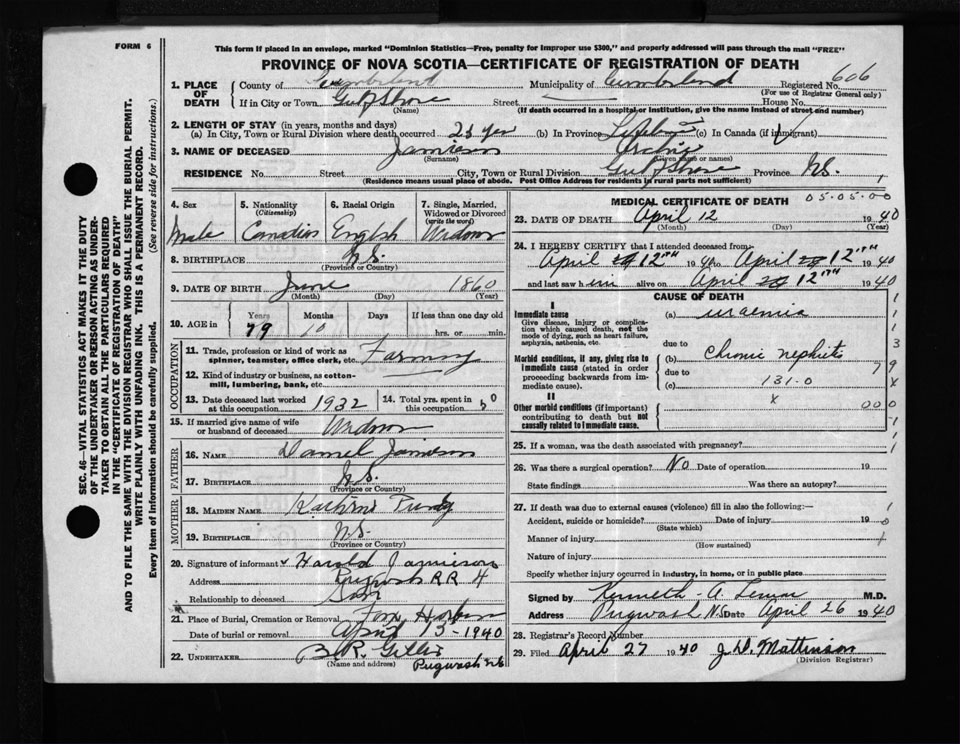 FORM 6
This form if placed in an envelope, marked "Dominion Statistics—Free, penalty for improper use $300," and properly addressed will pass through the mail "FREE"
PROVINCE OF NOVA SCOTIA—CERTIFICATE OF REGISTRATION OF DEATH
1. PLACE OF DEATH County of Cumberland Municipality of Cumberland Registered No. 606
(For use of Registrar General only)
If in City or Town Gulf Shore Street House No.
(Name) (If death occurred in a hospital or institution, give the name instead of street and number)
2. LENGTH OF STAY (in years, months and days)
(a) In City, Town or Rural Division where death occurred (b) In Province Lifetime (c) In Canada (if immigrant)
3. NAME OF DECEASED Jamieson Archie
(Surname) (Given name or names)
RESIDENCE No. Street City, Town or Rural Division Gulf Shore Province N.S.
(Residence means usual place of abode. Post Office Address for residents in rural parts not sufficient)
4. Sex 5. Nationality (Citizenship) 6. Racial Origin 7. Single, Married, Widowed or Divorced (write the word)
Male Canadian English Widower
8. BIRTHPLACE N.S.
(Province or Country)
9. DATE OF BIRTH June 1860
(Month) (Day) (Year)
10. AGE in Years Months Days If less than one day old
79 10 hrs. or min.
OCCUPATION
11. Trade, profession or kind of work as spinner, teamster, office clerk, etc. Farming
12. Kind of industry or business, as cotton-mill, lumbering, bank, etc.
13. Date deceased last worked at this occupation 1932 14. Total yrs. spent in this occupation 50
15. If married give name of wife or husband of deceased Widower
FATHER
16. NAME Daniel Jamieson
17. BIRTHPLACE N.S.
(Province or Country)
MOTHER
18. MAIDEN NAME
19. BIRTHPLACE N.S.
(Province or Country)
20. Signature of informant Harold Jamieson
Address Pugwash RR 4
Relationship to deceased Son
21. Place of Burial, Cremation or Removal Fox Harbor
Date of burial or removal April 13-1940
22. UNDERTAKER
(Name and address) Pugwash NS
MEDICAL CERTIFICATE OF DEATH 05-05-00
23. DATE OF DEATH April 12 1940
(Month) (Day) (Year)
24. I HEREBY CERTIFY that I attended deceased from
April 12TH 1940 to April 12TH 1940
and last saw him alive on April 12TH 1940
CAUSE OF DEATH
I
Immediate cause (a) uraemia
Give disease, injury or complication which caused death, not the mode of dying, such as heart failure, asphyxia, asthenia, etc.
due to
Morbid conditions, if any, giving rise to immediate cause (stated in order proceeding backwards from immediate cause).
(b) Chronic nephritis
due to
(c) 131.0
II
Other morbid conditions (if important) contributing to death but not causally related to immediate cause.
x
000
25. If a woman, was the death associated with pregnancy?
26. Was there a surgical operation? No Date of operation 19
State findings Was there an autopsy?
27. If death was due to external causes (violence) fill in also the following:—
Accident, suicide or homicide? Date of injury 19
(State which)
Manner of injury
(How sustained)
Nature of injury
Specify whether injury occurred in industry, in home, or in public place
Signed by Kenneth A. M.D.
Address Pugwash N.S. Date April 26 1940
28. Registrar's Record Number
29. Filed April 27 1940 J.D. Mattinson
(Division Registrar)
SEC. 46—VITAL STATISTICS ACT MAKES IT THE DUTY
OF THE UNDERTAKER OR PERSON ACTING AS UNDER-
TAKER TO OBTAIN ALL THE PARTICULARS REQUIRED
IN THE "CERTIFICATE OF REGISTRATION OF DEATH"
AND TO FILE THE SAME WITH THE DIVISION REGISTRAR WHO SHALL ISSUE THE BURIAL PERMIT.
WRITE PLAINLY WITH UNFADING INK. THIS IS A PERMANENT RECORD.
Every item of information should be carefully supplied. (See reverse side for instructions.)